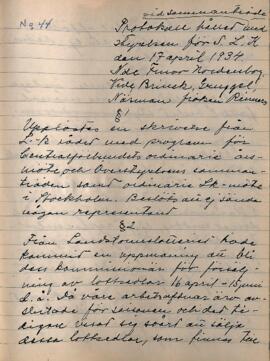 vid sammanträde
No 44
Protokoll hållet med
Styrelsen för S. L. K
den 17 april 1934
N.de Fruor Nordenborg,
Brück,
Närman fröken
§ 1
Upplästes en skrivelse från
L-R rådet med program för
Centralförbundets ordinarie års-
möte och Överstyrelsens samman-
träden samt ordinarie Lk-möte
i Stockholm. Beslöts att ej sända
någon representant
§ 2
Från Landstormslotteriet hade
kommit en uppmaning att bli
dess kommissionär för försälj-
ning av lottsedlar 16 april - 15 juni
d. a. Då våra arbetsaftnar äro av-
slutade för säsongen och det för
övrigt visat sig svårt att sälja
dessa lottsedlar, som finnas